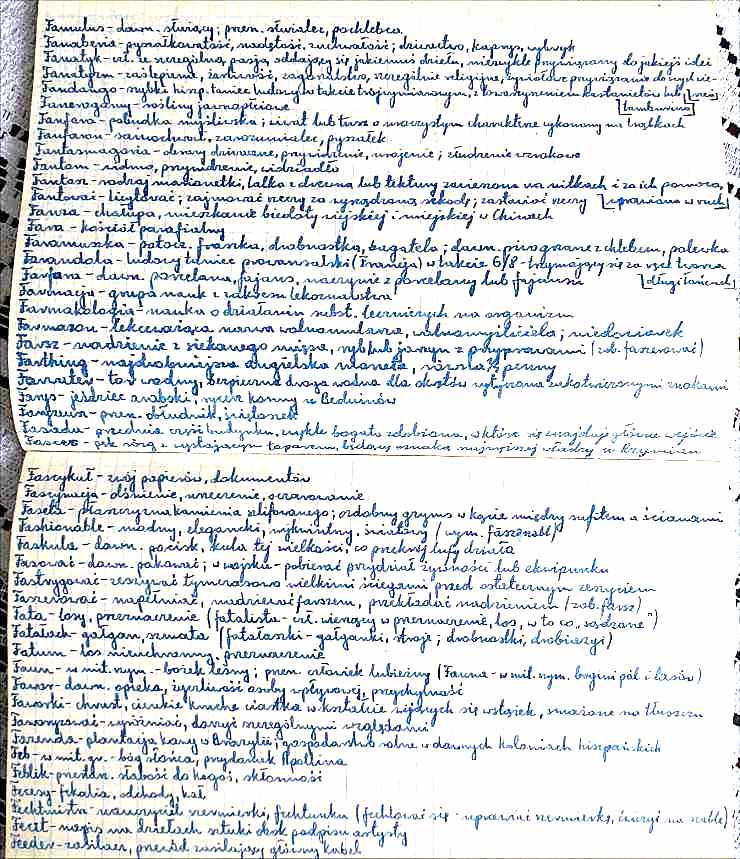 Famulus - dawn. służący; przen. służalec, pochlebca
Fanaberia - pyszałkowatość, nadętość, zuchwałość; dziwactwo, kaprys, wybryk
Fanatyk - czł. ze szczególną pasją oddający się jakiemuś dziełu, niezwykle przywiązany do jakiejś idei
Fanatyzm - zaślepienie, żarliwość, zagorzalstwo, szczególnie religijne,
Fandango - szybki hiszp. taniec ludowy w takcie trójmiarowym, z towarzyszeniem kastanietów lub
[tamburina]
Fanerogamy - rośliny jawnopłciowe
Fanfara - pobudka myśliwska; wiwat lub tusz o uroczystym charakterze wykonany na trąbkach
Fanfaron - samochwał, zarozumialec, pyszałek
Fantasmagoria - obrazy dziwaczne, przywidzenie, urojenie; złudzenie wzrokowe
Fantom - widmo, przywidzenie, widziadło
Fantosz - rodzaj marionetki, lalka z drzewa lub tektury zawieszona na nitkach i za ich pomocą
Fantować - licytować; zajmować rzeczy za wyrządzoną szkodę; zastawiać rzeczy [wprawiana w ruch]
Fanza - chałupa, mieszkanie biedoty wiejskiej i miejskiej w Chinach
Fara - kościół parafialny
Faramuszka - potocz. fraszka, drobnostka, bagatela; dawn. piwo grzane z chlebem, polewka
Farandola - ludowy taniec prowansalski (Francja) w takcie 6/8 - trzymający się za ręce tworzą
Farfura - dawn. porcelana, fajans, naczynie z porcelany lub fajansu [długi łańcuch]
Farmacja - grupa nauk z zakresu lekoznawstwa
Farmakologia - nauka o działaniu subst. leczniczych na organizm
Farmazon - lekceważąca nazwa wolnomularza, wolnomyśliciela; niedowiarek
Farsz - nadzienie z siekanego mięsa, ryb lub jarzyn z przyprawami (zob. faszerować)
Farthing - najdrobniejsza angielska moneta, równa ¼ penny
Farwater - tor wodny, bezpieczna droga wodna dla okrętów wytyczona zakotwiczonymi znakami
Farys - jeździec arabski, rycerz konny u Beduinów
Faryzeusz - przen. obłudnik, świętoszek
Fasada - przednia część budynku, zwykle bogato zdobiona, w której się znajduje główne wejście
Fasces - pęk rózg z wystającym toporem, będący oznaką najwyższej władzy w Rzymie
Fascykuł - zwój papierów, dokumentów
Fascynacja - olśnienie, urzeczenie, oczarowanie
Faseta - płaszczyzna kamienia szlifowanego; ozdobny gzyms w kącie między sufitem a ścianami
Fashionable - modny, elegancki, wykwintny, światowy (wym. faszenebl)
Faskula - dawn. pocisk, kula tej wielkości, co przekrój lufy działa
Fasować - dawn. pakować; w wojsku - pobierać przydział żywności lub ekwipunku
Fastrygować - zeszywać tymczasowo wielkimi ściegami przed ostatecznym zeszyciem
Faszerować - napełniać, nadziewać farszem, przekładać nadzieniem (zob. farsz)
Fata - losy, przeznaczenie (fatalista - czł. wierzący w przeznaczenie, los, w to co "sądzone")
Fatałach - gałgan, szmata (fatałaszki - gałganki, stroje; drobnostki, drobiazgi)
Fatum - los nieuchronny, przeznaczenie
Faun - w mit. rzym. - bożek leśny; przen. człowiek lubieżny (Fauna - w mit. rzym. bogini pól i lasów)
Fawor - dawn. opieka, życzliwość osoby wpływowej, przychylność
Faworki - chrust, cienkie kruche ciastka w kształcie wijących się wstążek, smażone na tłuszczu
Faworyzować - wyróżniać, darzyć szczególnymi względami
Fazenda - plantacja kawy w Brazylii; gospodarstwo rolne w dawnych koloniach hiszpańskich
Feb - w mit. gr. - bóg słońca, przydomek Apollina
Feblik - przestarz. słabość do kogoś, skłonność
Fecesy - fekalia, odchody, kał
Fechtmistrz - nauczyciel szermierki, fechtunku (fechtować się - uprawiać szermierkę, ćwiczyć na szable)
Fecit - napis na dziełach sztuki obok podpisu artysty
Feeder - zasilacz, przewód zasilający główny kabel